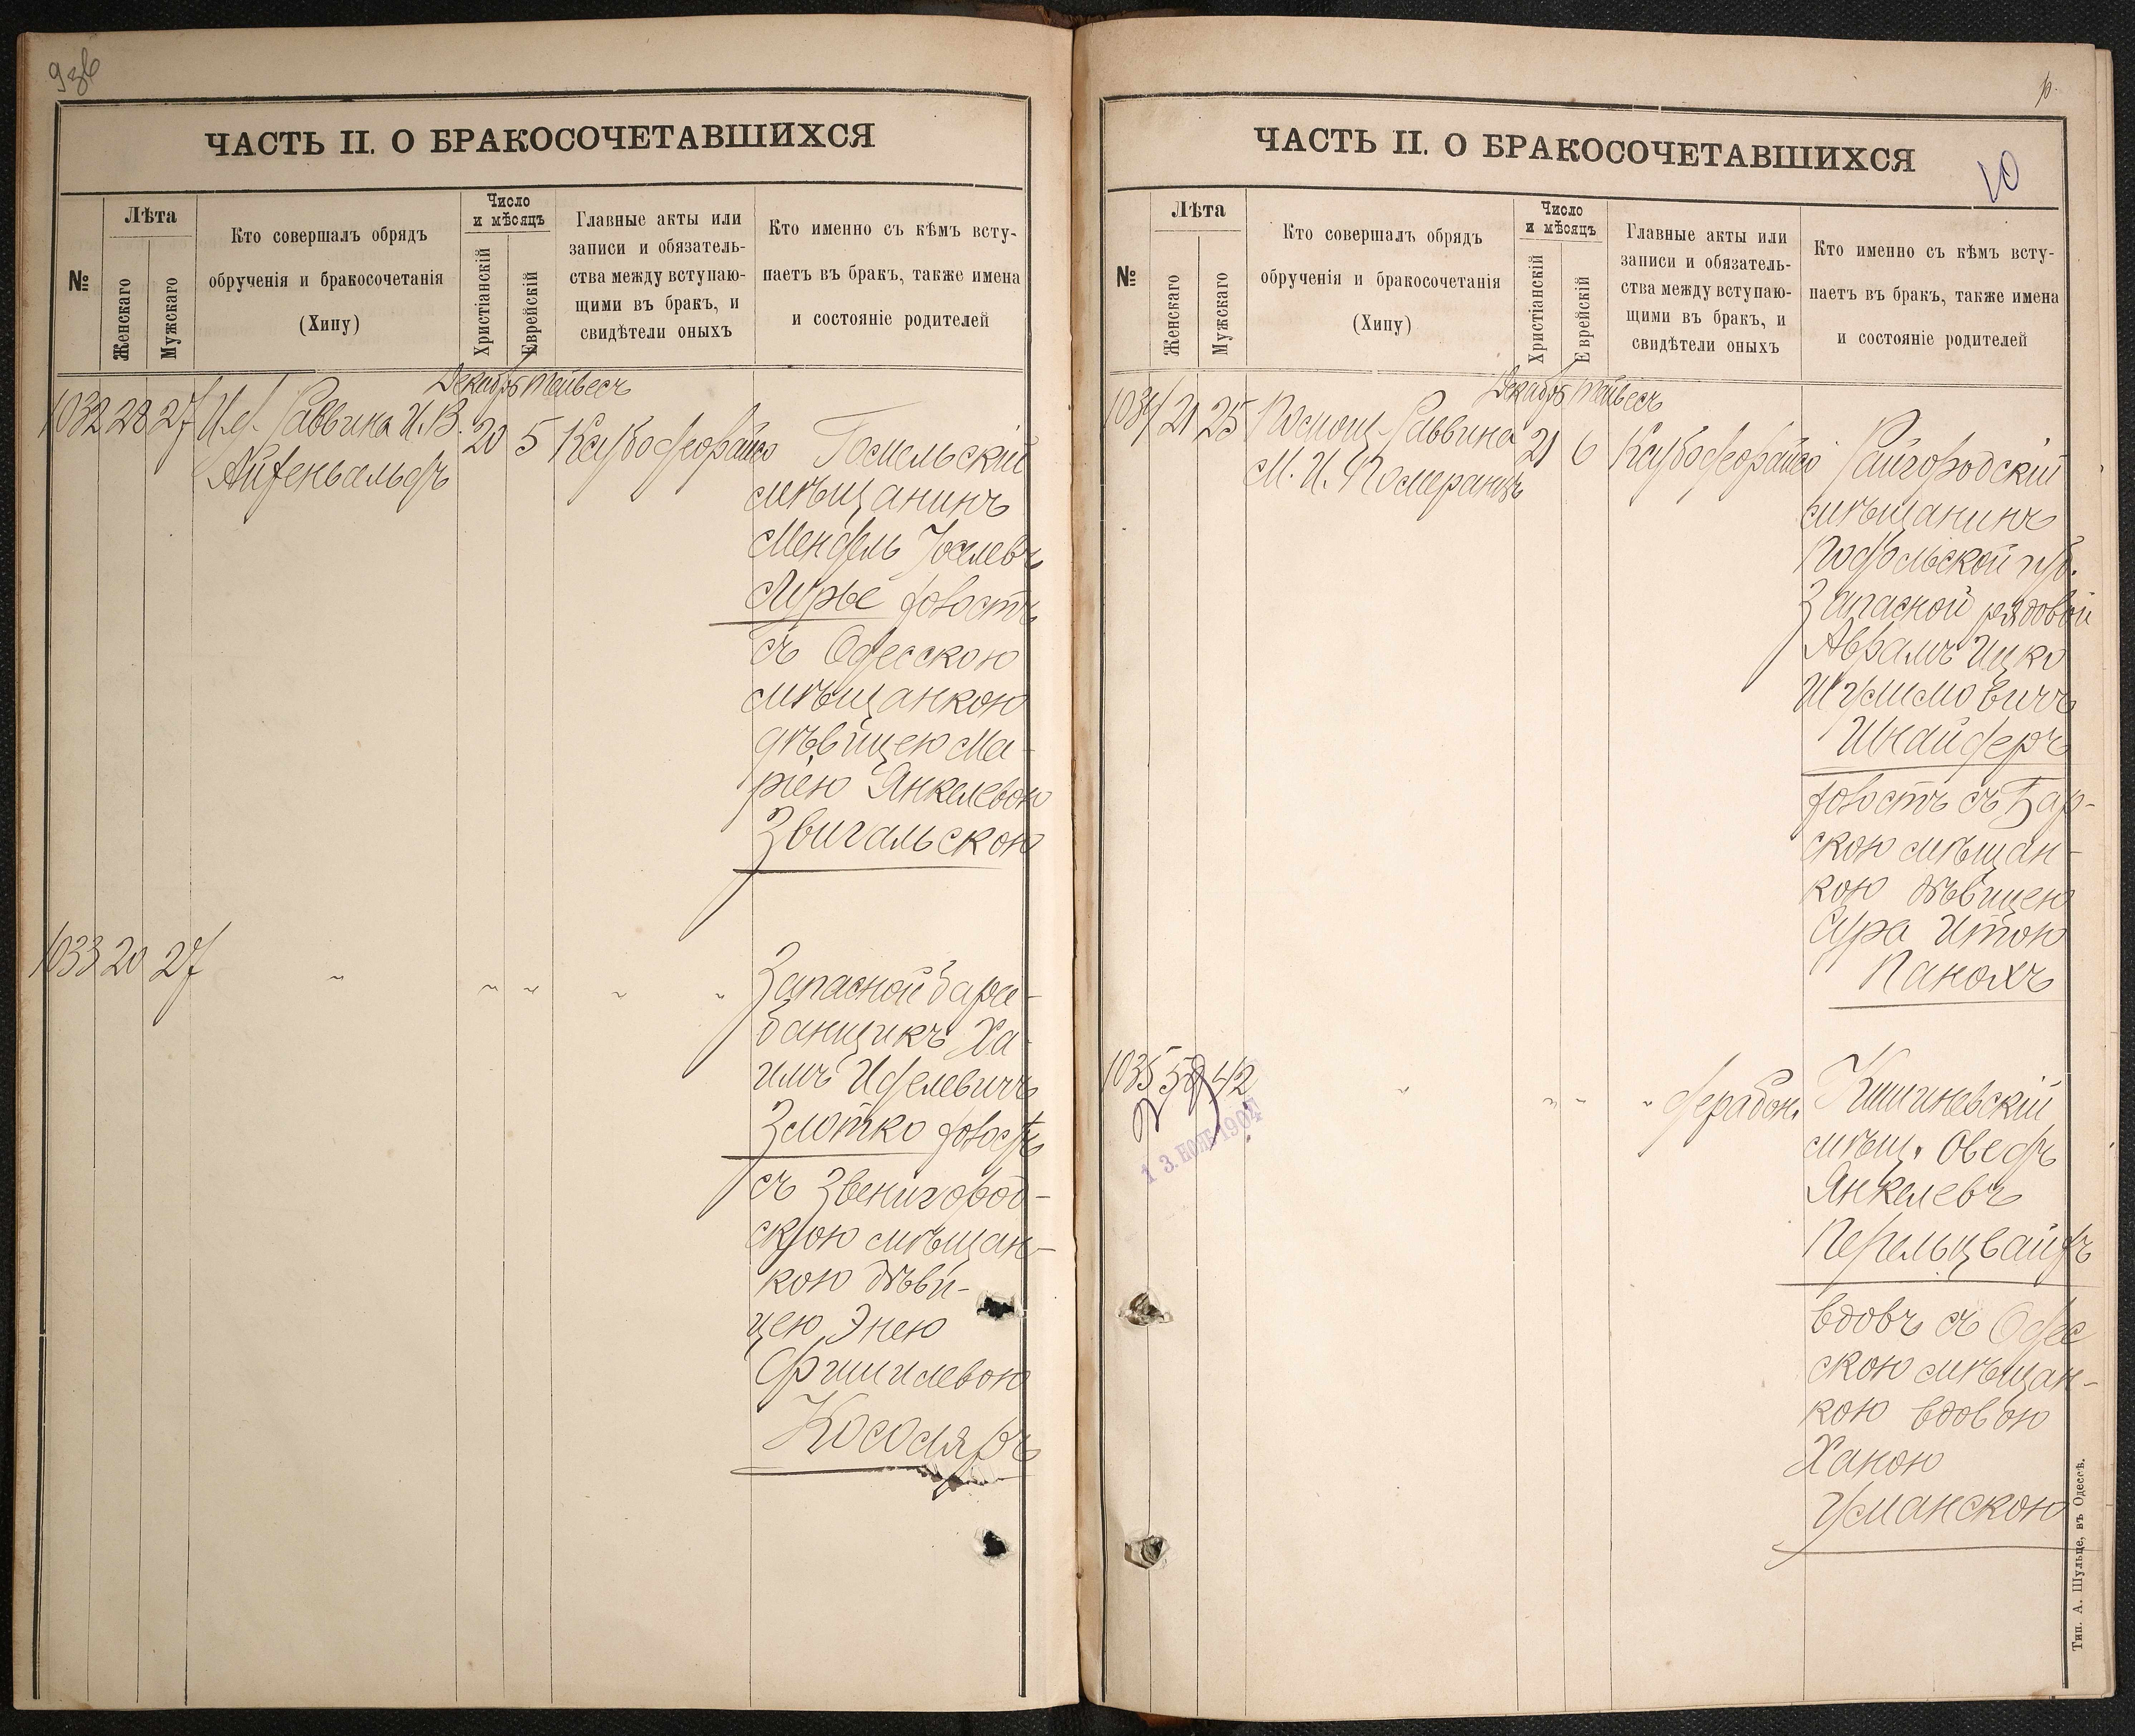 ЧАСТЬ II. О БРАКОСОЧЕТАВШИХСЯ
№
Лѣта
Женскаго
Мужскаго
Кто совершалъ обрядъ
обрученія и бракосочетанія
(Хипу)
Число
и мѣсяцъ
Христіанскій
Еврейскій
Главные акты или
записи и обязатель-
ства между вступаю-
щими въ бракъ, и
свидѣтели оныхъ
Кто именно съ кѣмъ всту-
паетъ въ бракъ, также имена
и состояніе родителей
Декабрь Тейвесъ
1032 28 27 И.д. Раввина И.В.
Айзенвальдъ
20 5
Гомельскій
мѣщанинъ
Мендель Іоселевъ
Лурье холостъ
съ Одесскою
мѣщанкою
дѣвицею Ма-
ріею Янкелевою
Звигальскою
1033 20 27 " " " " "
Запасной бара-
банщикъ Ха-
имъ Иделевичъ
Злотко холостъ
съ Звенигород-
скою мѣщан-
кою дѣви-
цею Энею
Фишилевою
Кособляръ
ЧАСТЬ II. О БРАКОСОЧЕТАВШИХСЯ
10
№
Лѣта
Женскаго
Мужскаго
Кто совершалъ обрядъ
обрученія и бракосочетанія
(Хипу)
Число
и мѣсяцъ
Христіанскій
Еврейскій
Главные акты или
записи и обязатель-
ства между вступаю-
щими въ бракъ, и
свидѣтели оныхъ
Кто именно съ кѣмъ всту-
паетъ въ бракъ, также имена
и состояніе родителей
Декабрь Тейвесъ
1034 21 25 Помощ. Раввина
М. И. Померанцъ
21 6
Райгородскій
мѣщанинъ
Подольской губ.
Запасной рядовой
Аврамъ Ицко
Шулимовичъ
Шнайдеръ
холостъ съ Бар-
скою мѣщан-
кою дѣвицею
Сура Итою
Панохъ
1035 42 " " " "
Кишиневскій
мѣщ. Оведъ
Янкелевъ
Перельцвайгъ
вдовъ съ Одес
скою мѣщан-
кою вдовою
Ханою
Уманскою
Тип. А. Шульце, въ Одессѣ.